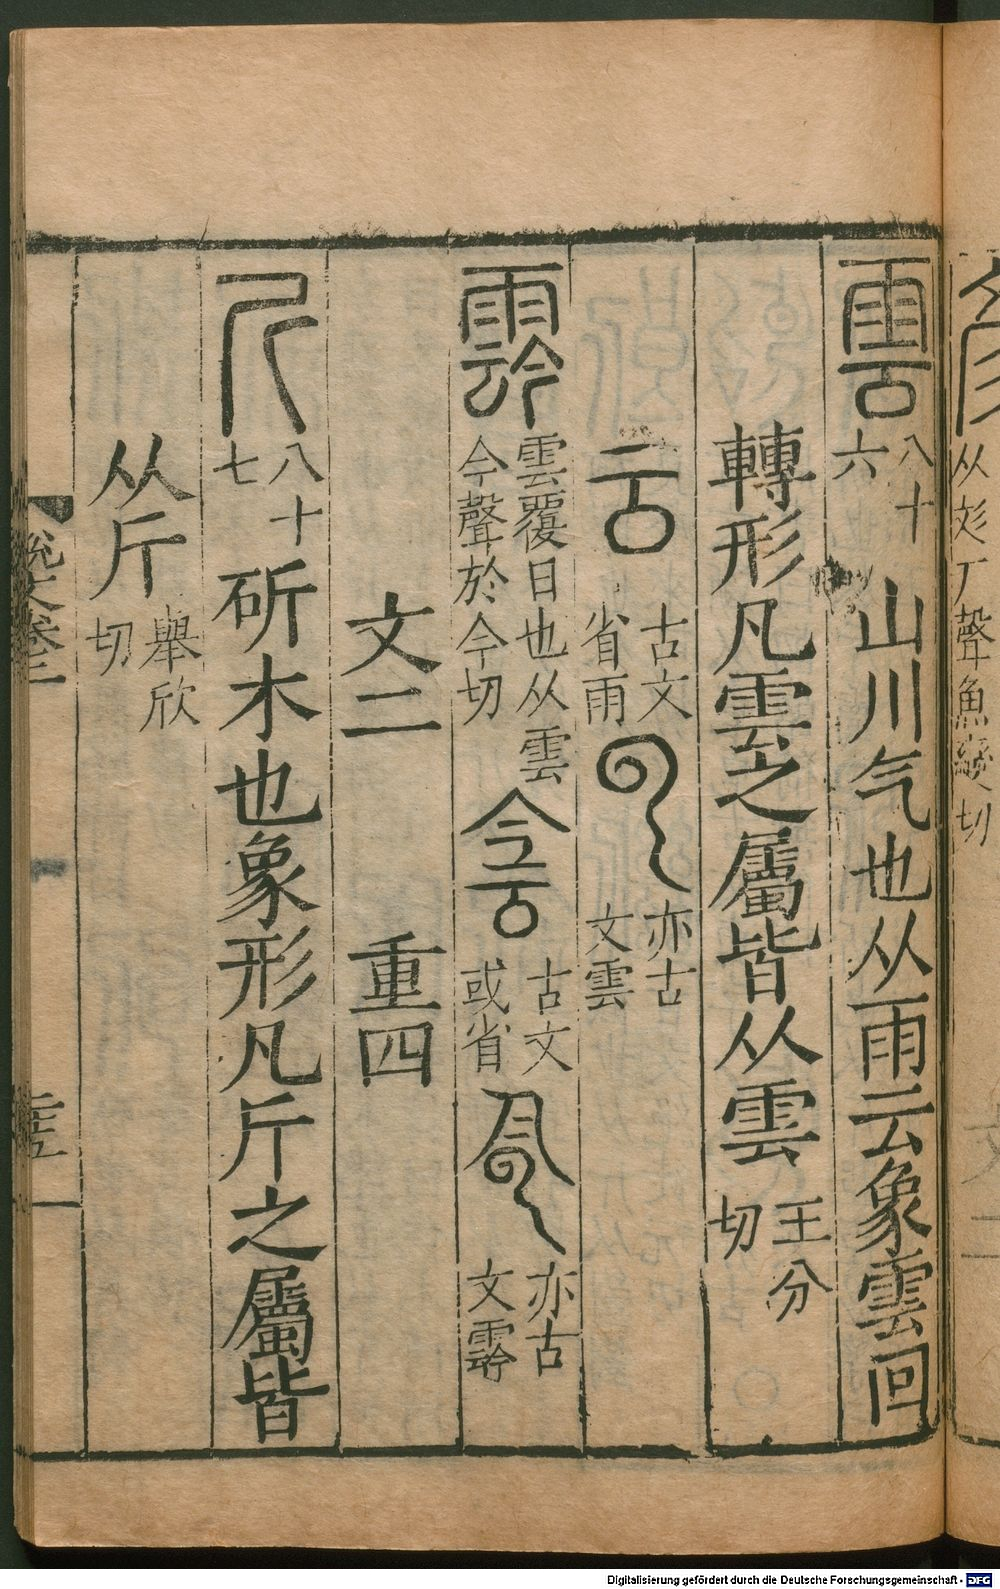 从彣厂聲魚變切
雲 八十六 山川气也从雨云象雲回
轉形凡雲之屬皆从雲 王分切
云 古文省雨 亦古文雲
霒 雲覆日也从雲今聲於今切 侌 古文或省 亦古文霒
文二 重四
斤 八十七 斫木也象形凡斤之屬皆
从斤 舉欣切
說文卷三
Digitalisierung gefördert durch die Deutsche Forschungsgemeinschaft - DFG